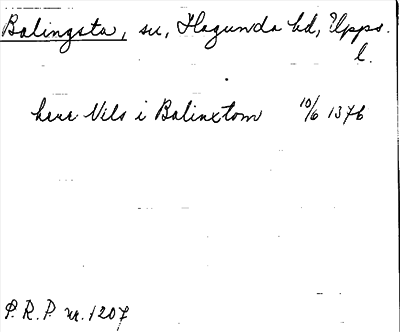 Balingsta, sn, Hagunda hd, Upps.
l.
herr Nils i Balinxtom 10/6 1376
P.R.P. nr. 1207